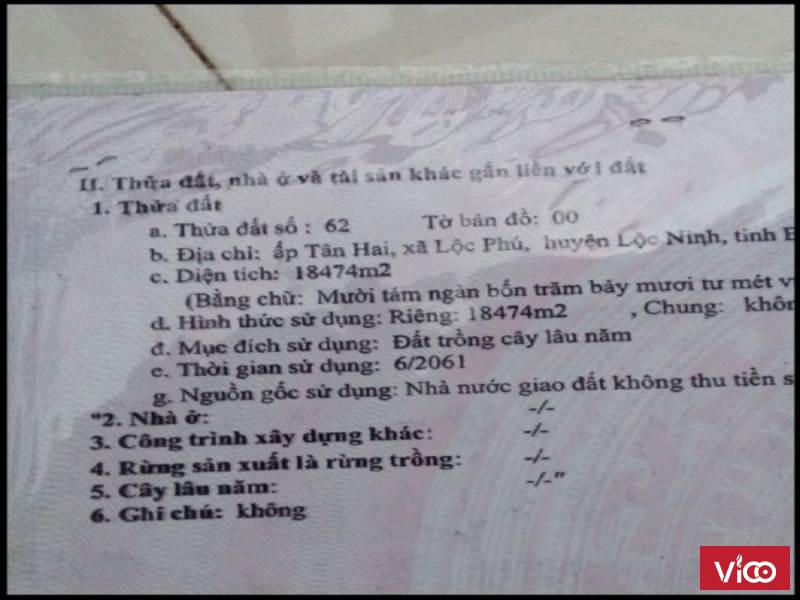 II. Thửa đất, nhà ở và tài sản khác gắn liền với đất
1. Thửa đất
a. Thửa đất số : 62 Tờ bản đồ: 00
b. Địa chỉ: ấp Tân Hai, xã Lộc Phú, huyện Lộc Ninh, tỉnh
c. Diện tích: 18474m2
(Bằng chữ: Mười tám ngàn bốn trăm bảy mươi tư mét
d. Hình thức sử dụng: Riêng: 18474m2 , Chung:
đ. Mục đích sử dụng: Đất trồng cây lâu năm
e. Thời gian sử dụng: 6/2061
g. Nguồn gốc sử dụng: Nhà nước giao đất không thu tiền
"2. Nhà ở: -/-
3. Công trình xây dựng khác: -/-
4. Rừng sản xuất là rừng trồng: -/-
5. Cây lâu năm: -/-"
6. Ghi chú: không
ViCO